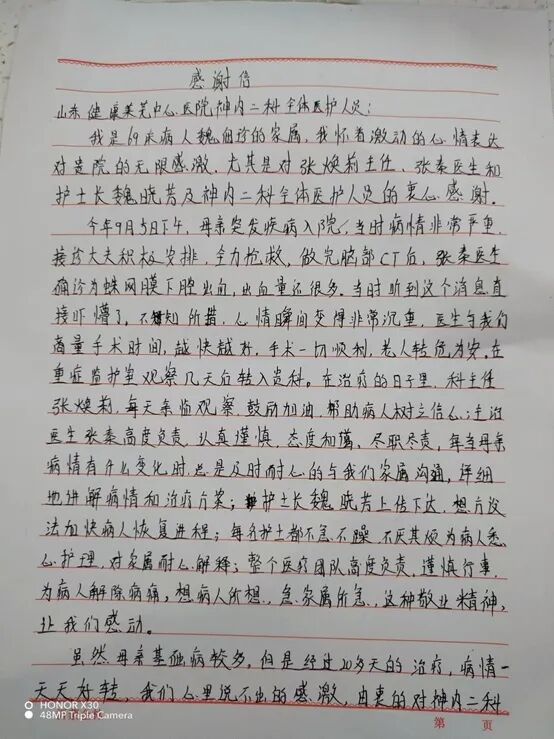 感谢信
山东健康莱芜中心医院神内二科全体医护人员：
我是69床病人魏洄诊的家属，我怀着激动的心情表达
对贵院的无限感激，尤其是对张焕莉主任、张秦医生和
护士长魏晓芳及神内二科全体医护人员的衷心感谢。
今年9月5日下午，母亲突发疾病入院，当时病情非常严重，
接诊大夫积极安排，全力抢救，做完脑部CT后，张秦医生
确诊为蛛网膜下腔出血，出血量还很多。当时听到这个消息直
接吓懵了。不知所措，心情瞬间变得非常沉重，医生与我们
商量手术时间，越快越好，手术一切顺利，老人转危为安。在
重症监护室观察几天后转入贵科。在治疗的日子里，科主任
张焕莉，每天亲临观察，鼓励加油，帮助病人树立信心；主治
医生张秦高度负责，认真谨慎，态度和蔼、尽职尽责，每当母亲
病情有什么变化时，总是及时耐心的与我们家属沟通，详细
地讲解病情和治疗方案；护士长魏晓芳上传下达，想方设
法加快病人恢复进程；每个护士都不急不躁，不厌其烦为病人悉
心护理，对家属耐心解释；整个医疗团队高度负责，谨慎行事，
为病人解除病痛，想病人所想，急家属所急，这种敬业精神，
让我们感动。
虽然母亲基础病较多，但是经过20多天的治疗，病情一
天天好转，我们心里说不出的感激，由衷的对神内二科
第 页
HONOR X30
48MP Triple Camera